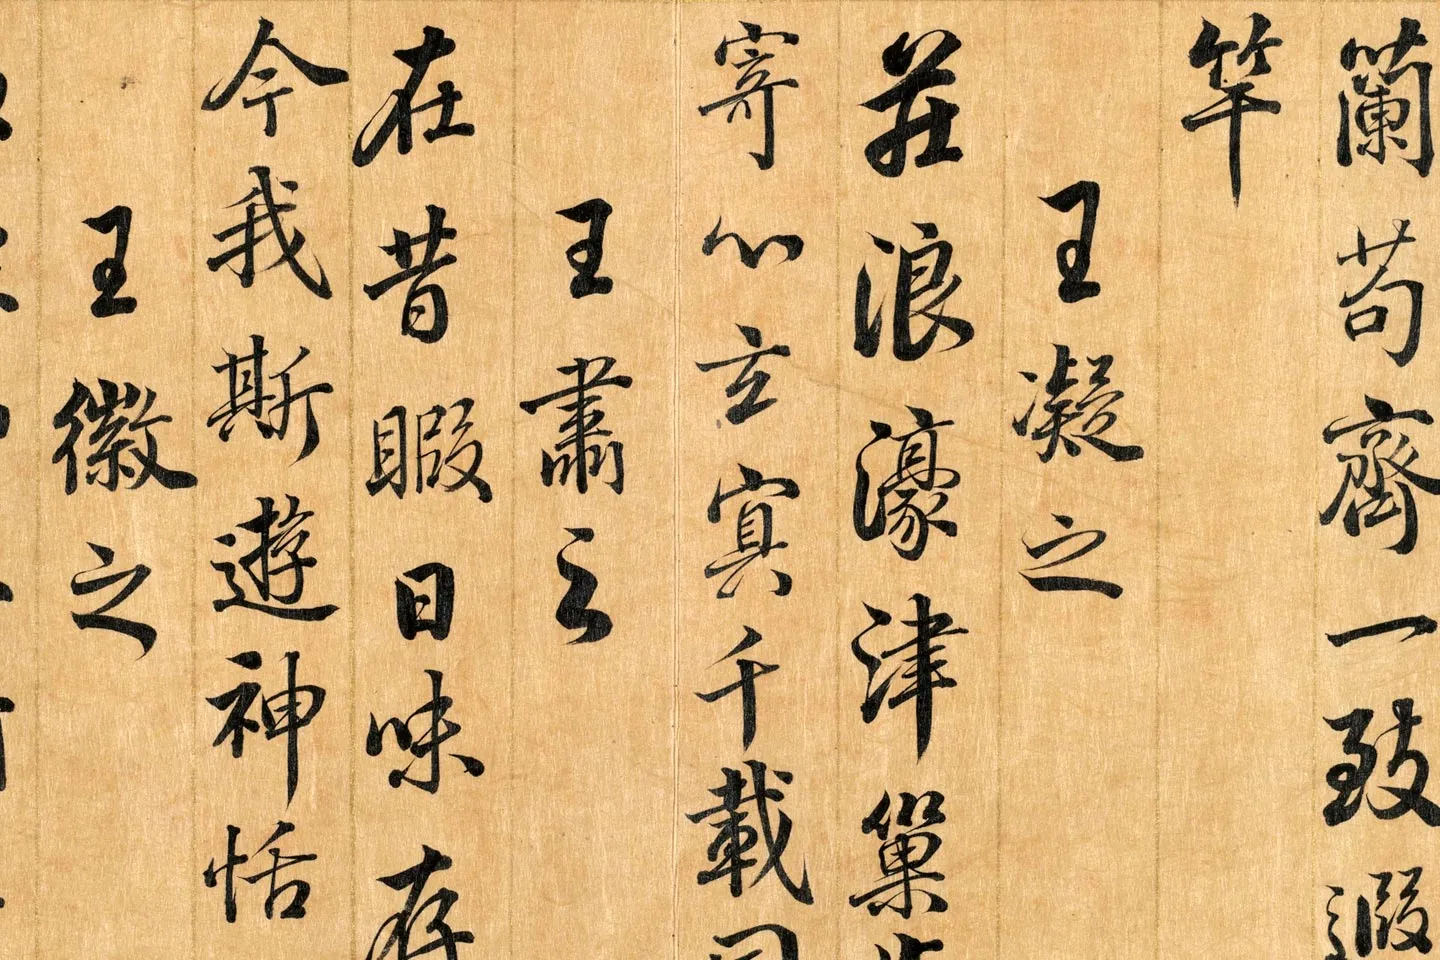 蘭苟齊一致遐
竿
王凝之
莊浪濠津巢步
寄心玄冥千載同
王肅之
在昔暇日味存
今我斯遊神恬
王徽之